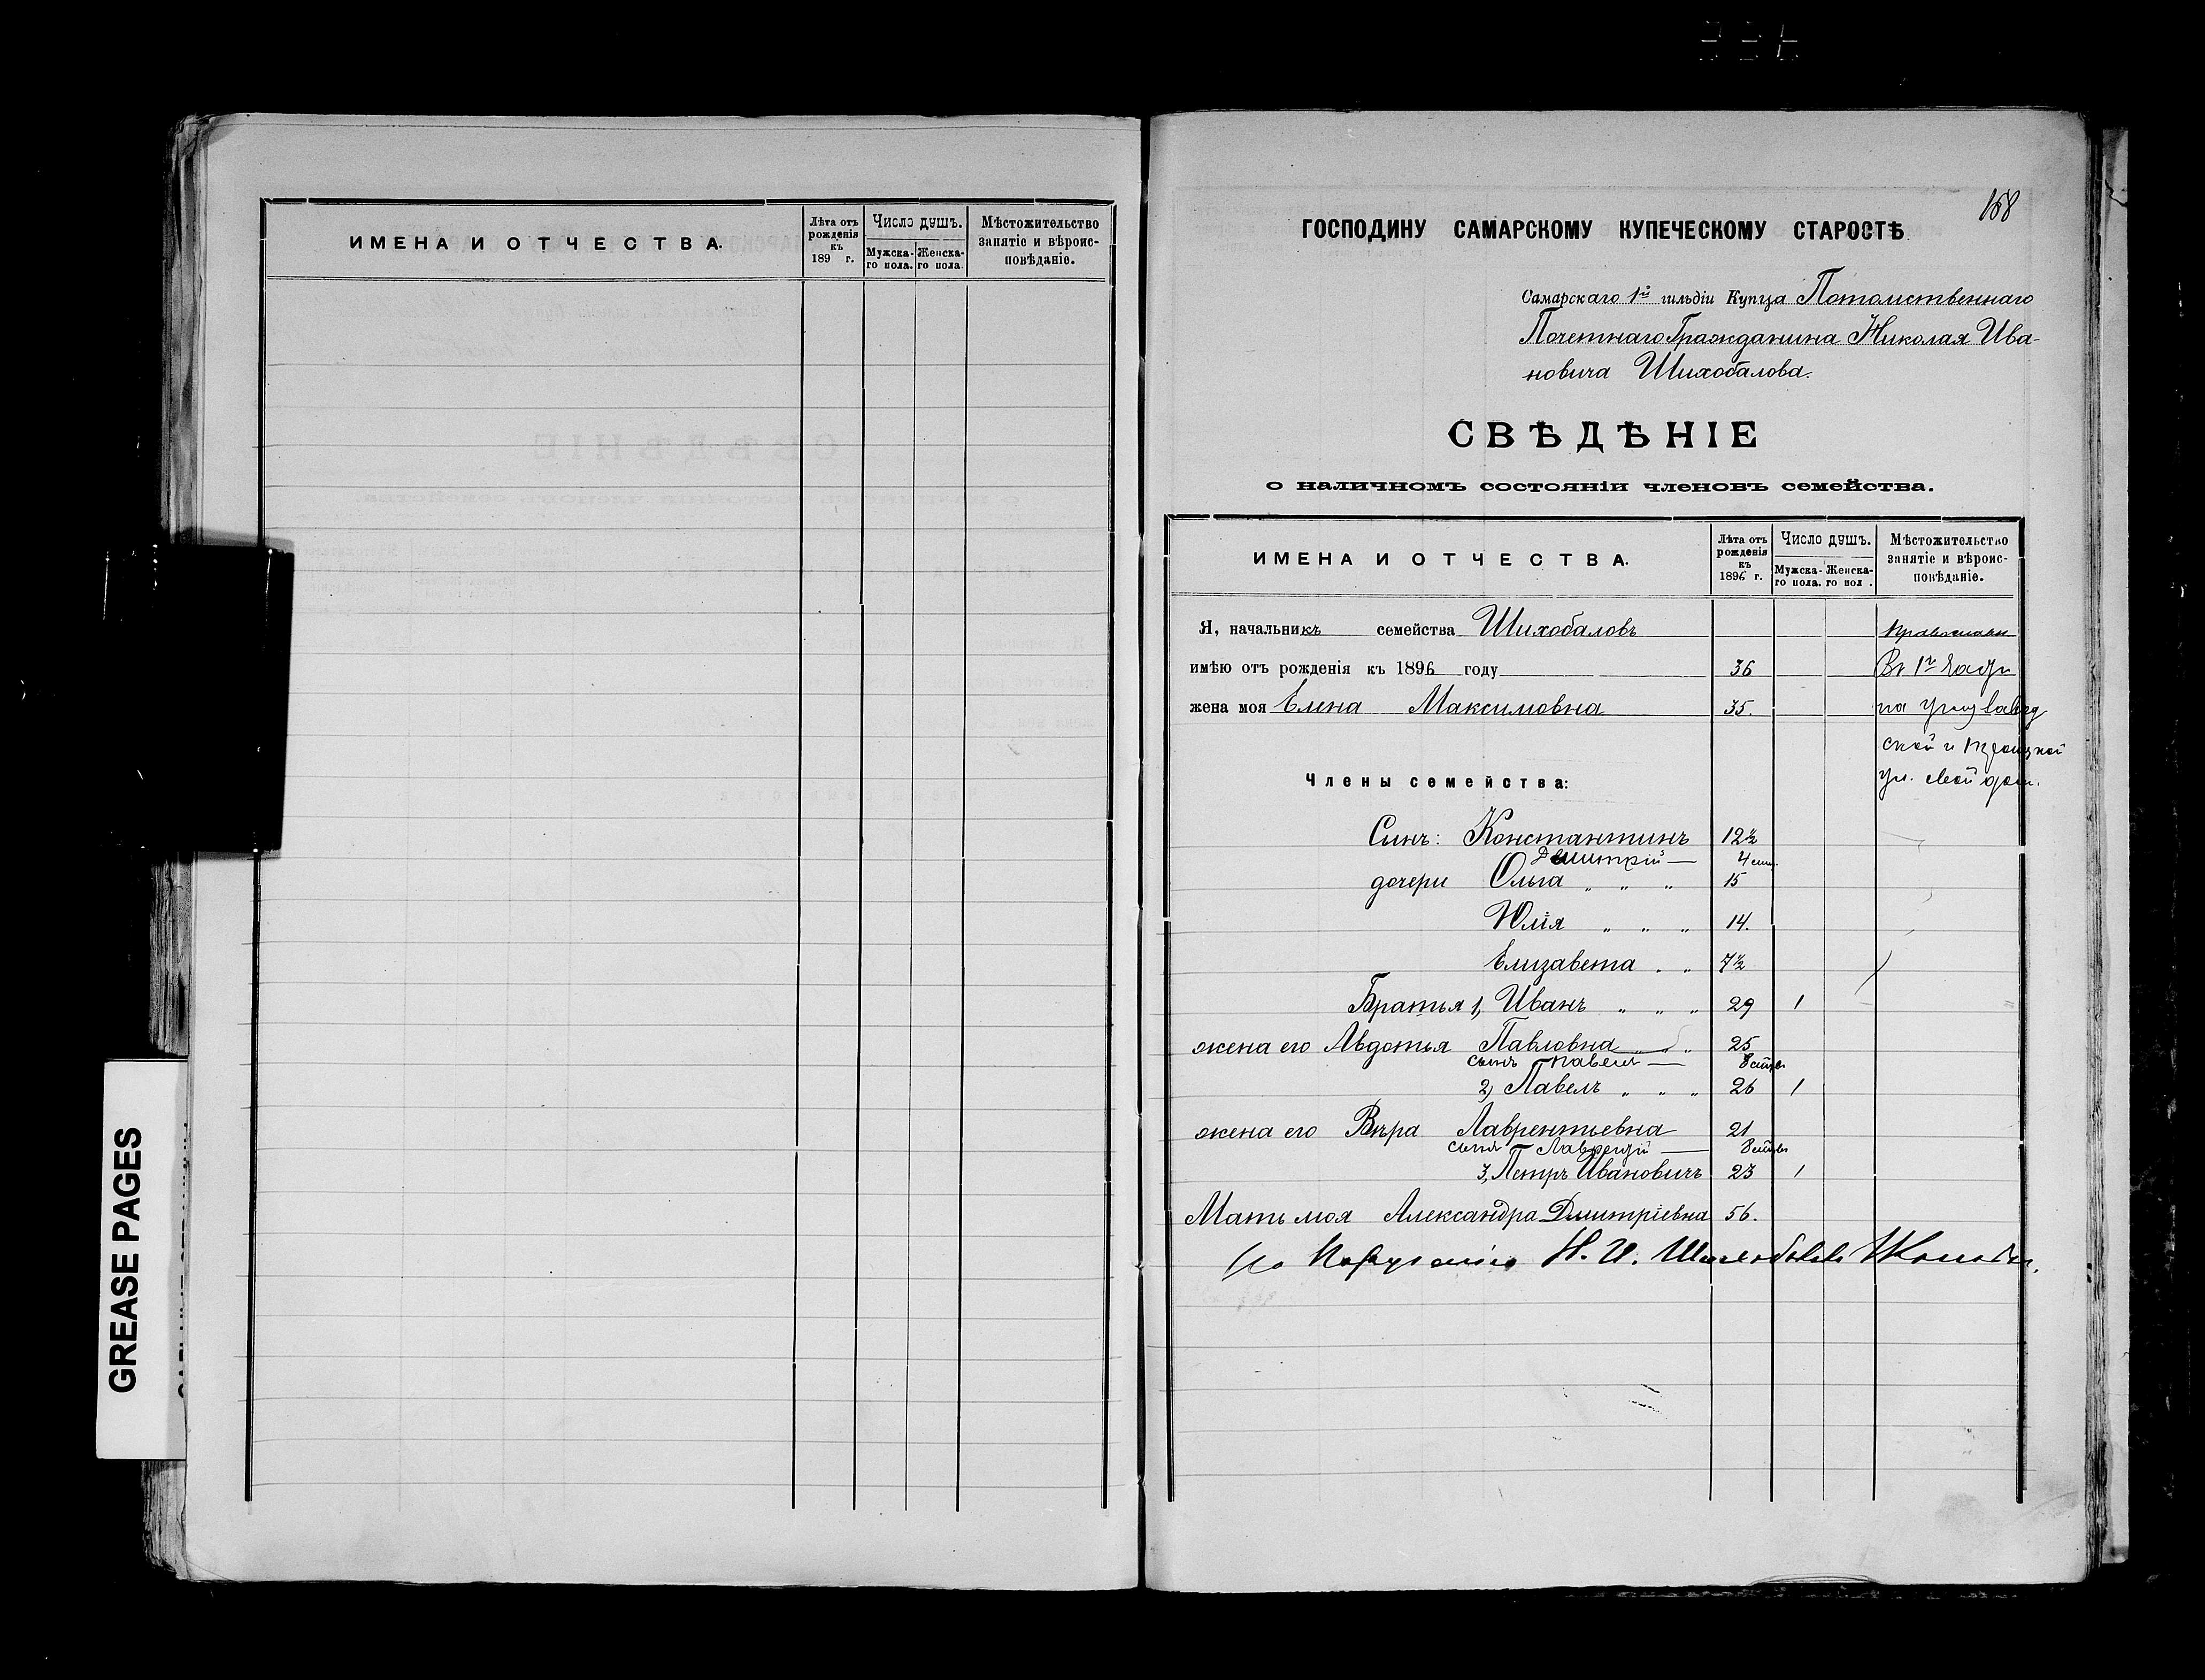 ИМЕНА И ОТЧЕСТВА.
Лѣта отъ рожденія къ 189 г.
Число душъ.
Мужска-го пола.
Женска-го пола.
Мѣстожительство занятіе и вѣроис-повѣданіе.
GREASE PAGES
168
ГОСПОДИНУ САМАРСКОМУ КУПЕЧЕСКОМУ СТАРОСТѢ
Самарскаго 1й гильдіи Купца Потомственнаго
Почетнаго Гражданина Николая Ива-
новича Шихобалова.
СВѢДѢНІЕ
о наличномъ состояніи членовъ семейства.
ИМЕНА И ОТЧЕСТВА.
Лѣта отъ рожденія къ 1896 г.
Число душъ.
Мужска-го пола.
Женска-го пол .
Мѣстожительство занятіе и вѣроис-повѣданіе.
Я, начальникъ семейства Шихобаловъ
имѣю отъ рожденія къ 1896 году 36 Въ 1й
жена моя Елена Максимовна 35. на
ской и Троицкой
Члены семейства: ул. свой дом.
Сынъ: Константинъ 12½
Дмитрій — 4
дочери Ольга „ „ „ 15
Юлія „ „ „ 14.
Елизавета „ „ 7½
Братья 1, Иванъ „ „ „ 29 1
жена его Авдотья Павловна „ „ 25
сынъ Павелъ — 8
2) Павелъ „ „ „ 26 1
жена его Вѣра Лаврентьевна 21
сынъ — 8
3, Петръ Ивановичъ 23 1
Мать моя Александра Дмитріевна 56.
По Порученію Н. И. Шихобалова